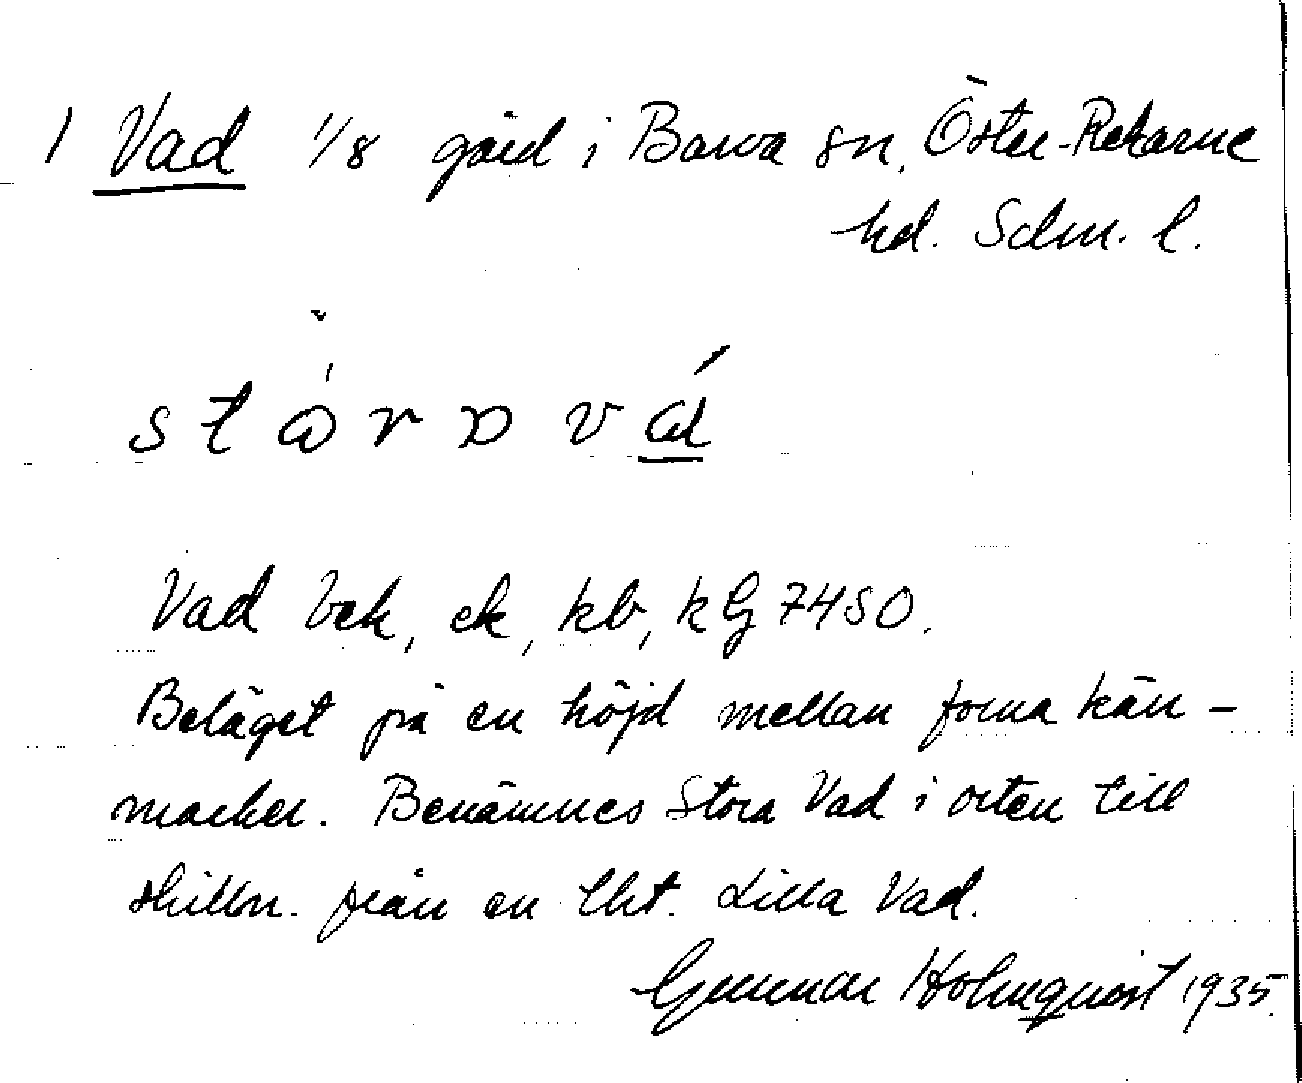 1 Vad 1/8 gård i Barva sn, Öster-Rekarne
hd. Sdm. l.
Vad bek, ek, kb, kG 7450.
Beläget på en höjd mellan forna kärr-
marker. Benämnes Stora Vad i orten till
skilln. från en lht. Lilla Vad.
Gunnar Holmquist 1935.